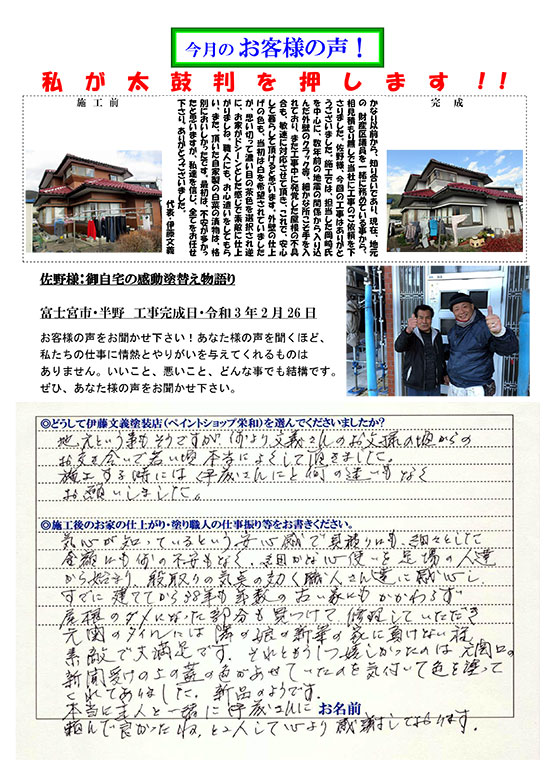 今月のお客様の声！
私が太鼓判を押します！！
施工前
完成
かなり以前から、知り合いであり、現在、地元
の 財産区議員を一緒に務めている事から、
相見積もり越しと当社に工事のご依頼を下
さりました、佐野様、今回の工事はありがと
うございました。施工では、担当した岡崎氏
を中心に、数年前の地震の関係から入り込
んだ外壁のクラック等、細かな所こと手を入
れており、また工事中に発覚した屋根の不具
合も、敏速に対応させて頂き、これで、安心
して暮らして頂けると思います。外壁の仕上
げの色も、当初は白を希望されていました
が、思い切って濃い目の茶色を選択され逆
に、お家がビシーンとした感じで素敵に仕上
がりましね。職人にも、お心遣いをしてもら
い、また、頂いた自家製の白菜の漬物は、格
別においしかったです。最初は、不安が多かっ
たと思いますが、私達を信じ、全てをお任せ
下さり、ありがとうございました。
代表・伊藤文義
佐野様：御自宅の感動塗替え物語り
富士宮市・半野 工事完成日・令和３年２月２６日
お客様の声をお聞かせ下さい！あなた様の声を聞くほど、
私たちの仕事に情熱とやりがいを与えてくれるものは
ありません。いいこと、悪いこと、どんな事でも結構です。
ぜひ、あなた様の声をお聞かせ下さい。
◎どうして伊藤文義塗装店（ペイントショップ栄和）を選んでくださいましたか？
地元という事もそうですが何より文義さんのお父様の頃からの
お支き合いで若い頃本当によくして頂きました。
施工する時には伊藤さんにと何の迷いもなく
お願いしました。
◎施工後のお家の仕上がり・塗り職人の仕事振り等をお書きください。
気心が知っているという安心感で見積りにも、細々とした
金額にも何の不安もなく、細かな心使いを足場の人達
から始まり、段取りの気菜の効く職人さん達に感心し、
すでに建ててから38年も年数の古い家にもかかわらず
屋根のダメになった部分も見つけて、修理していただき
元図のタイルには隣の娘の新築の家に負けない程
素敵で大満足です。それともう1つ嬉しかったのは元関口の
新聞受けの上の蓋の色があせていたのを気付いて色を塗って
くれてありました。新品のようです。
本当に主人と一緒に伊藤さんに
お名前
頼んで良かったね、と2人して心より感謝しております。